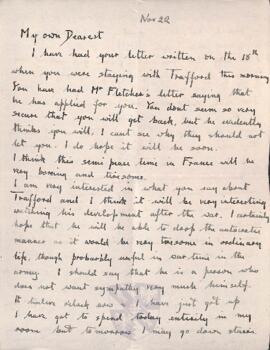 Nov 22
My own Dearest
I have had your letter written on the 18th
when you were staying with Trafford this morning
You have had Mr Fletcher's letter saying that
he has applied for you. You dont seem so very
secure that you will get back, but he evidently
thinks you will. I cant see why they should not
let you. I do hope it will be soon.
I think this semi peace time in France will be
very boring and tiresome.
I am very interested in what you say about
Trafford and I think it will be very interesting
watching his development after the war. I certainly
hope that he will be able to drop the autocratic
manner as it would be very tiresome in ordinary
life, though probably useful in war time in the
army. I should say that he is a person who
does not want sympathy very much himself.
It twelve oclock now I have just got up
I have got to spend today entirely in my
room but tomorrow I may go down stairs